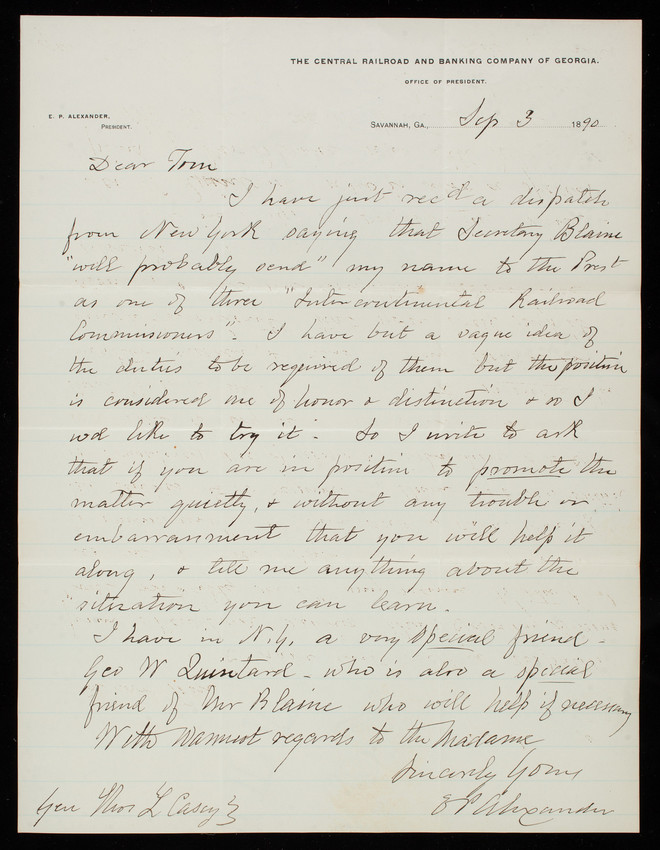 THE CENTRAL RAILROAD AND BANKING COMPANY OF GEORGIA.
OFFICE OF PRESIDENT.
E. P. ALEXANDER,
PRESIDENT.
SAVANNAH, GA., Sep 3 1890
Dear Tom
I have just recd a dispatch
from New York saying that Secretary Blaine
"will probably send" my name to the Prest
as one of three "Intercontinental Railroad
Commissioners". I have but a vague idea of
the duties to be required of them but the position
is considered one of honor & distinction & so I
wd like to try it. So I write to ask
that if you are in position to promote the
matter quietly, & without any trouble or
embarrassment that you will help it
along, & tell me anything about the
situation you can learn.
I have in N.Y. a very special friend -
Geo W Quintard - who is also a special
friend of Mr Blaine who will help if necessary
With warmest regards to the Madame
Sincerely Yours
EP Alexander
Gen Thos L Casey